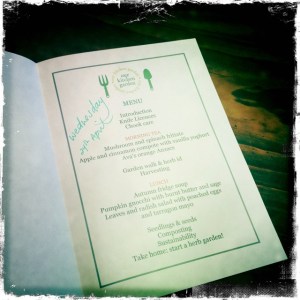 our
kitchen
garden
MENU
Introduction
Knife Lessons
Chook care
MORNING TEA
Mushroom and spinach frittata
Apple and cinnamon compote with vanilla yoghurt
Garden walk & herb id
Harvesting
LUNCH
Autumn fridge soup
Pumpkin gnocchi with burnt butter and sage
Leaves and radish salad with poached eggs
and tarragon mayo
Seedlings & seeds
Composting
Sustainability
Take home: start a herb garden!
wednesday